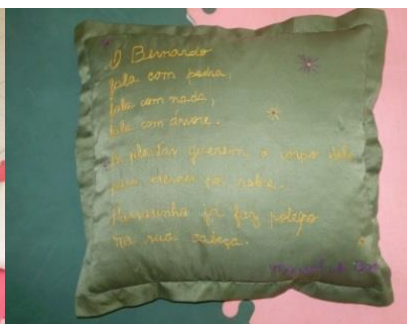 O Bernardo
fala com pedra,
fala com nada,
fala com árvore.
As plantas querem o corpo dele
para crescer por sobre.
Passarinho já faz poleiro
na sua cabeça.